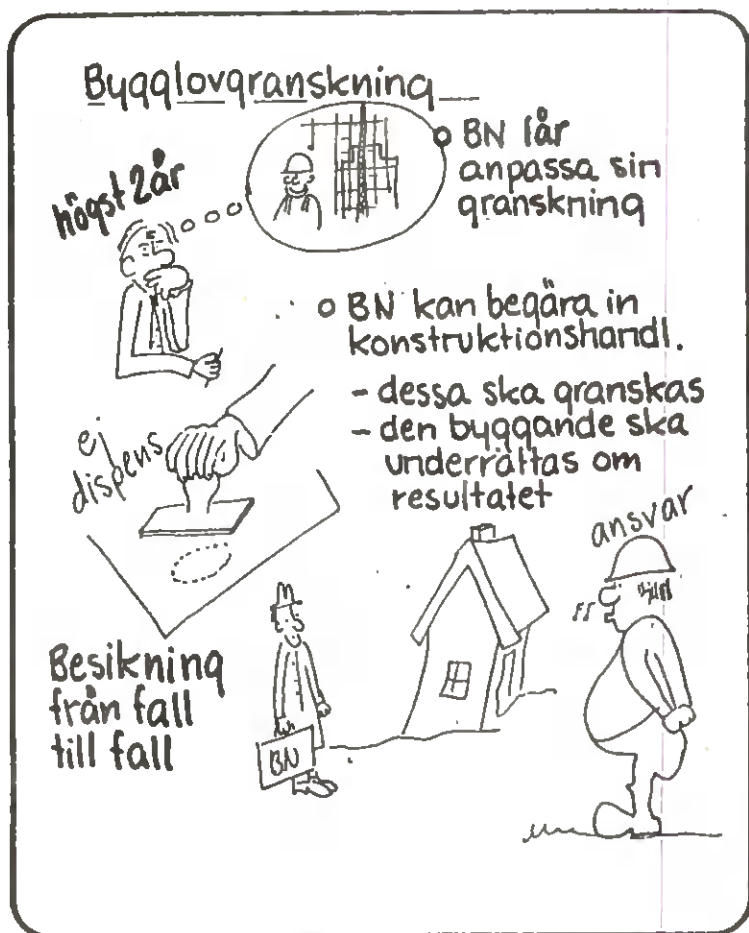 Bygglovgranskning
högst 2 år
o BN får
anpassa sin
granskning
o BN kan begära in
konstruktionshandl.
- dessa ska granskas
- den byggande ska
underrättas om
resultatet
ej
dispens
ansvar
Besikning
från fall
till fall
BN